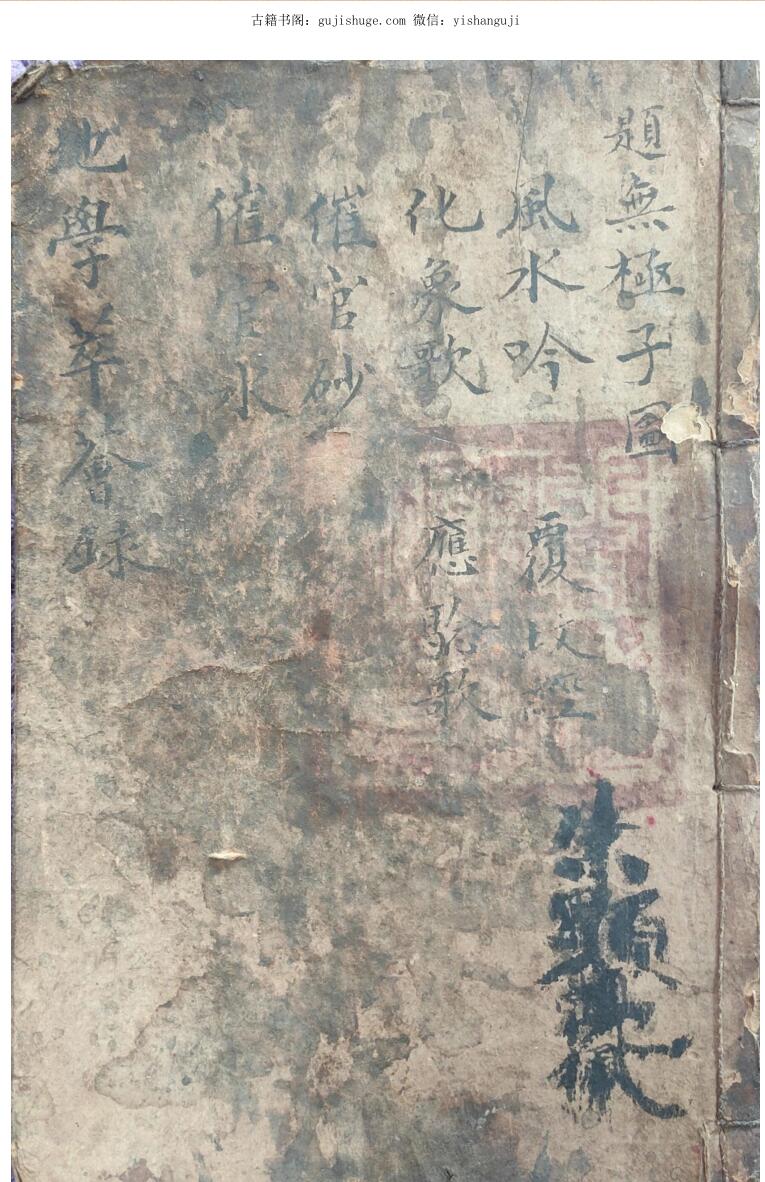 古籍书阁：gujishuge.com 微信：yishanguji
題無極子圖
風水吟 覆坟經
化象歌 應驗歌
催官砂
催官水
地學萃薈錄
朱